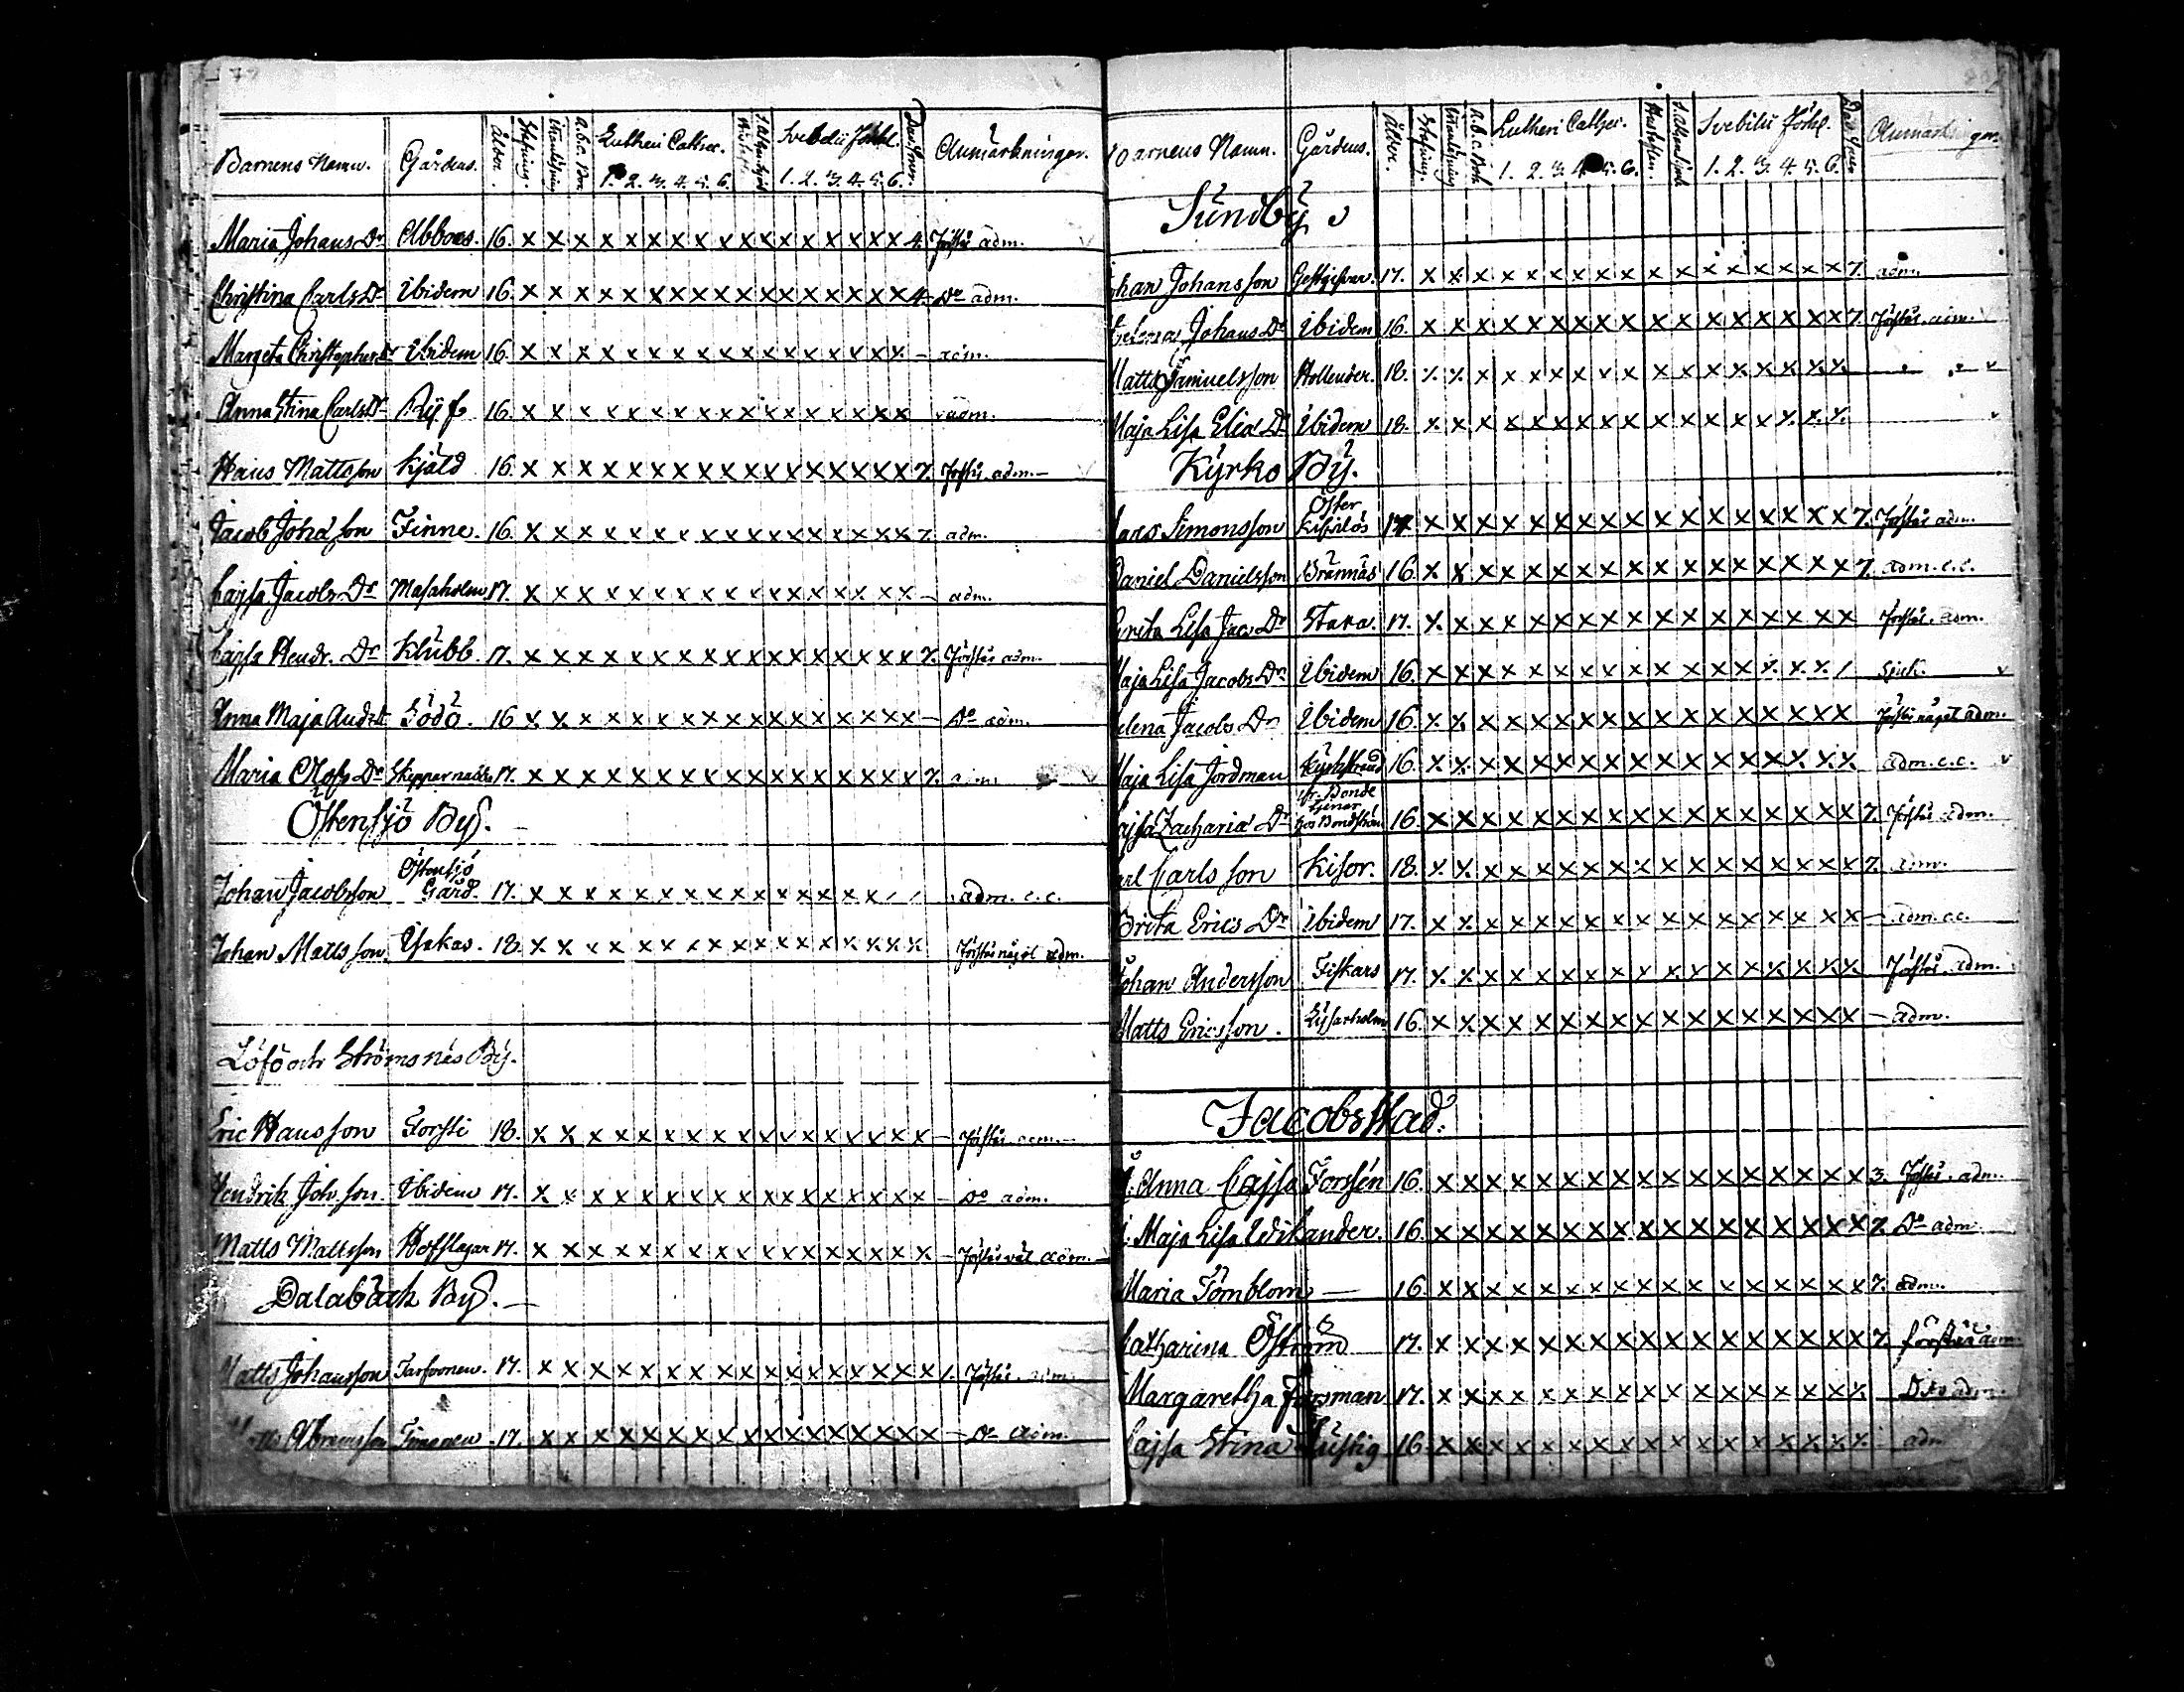 Barnens Namn. Gårdens. Ålder. Stafning. Utanläsning A.B.C. Bok Lutheri Cathec. 1. 2. 3. 4. 5. 6. Svebilii Förkl. 1. 2. 3. 4. 5. 6. Anmärkningar.
Maria Johans Dr Abbors. 16. x x x x x x x x x x x x x x x x 4. Förstår adm.
Christina Carls Dr Ibidem 16 x x x x x x x x x x x x x x x x 4. Do adm.
Margeta Christopher Dr Ibidem 16. x x x x x x x x x x x x x x x x – adm.
Anna Stina Carls Dr Ryss 16 x x x x x x x x x x x x x x x x adm.
Hans Mattsson Kjäld 16. x x x x x x x x x x x x x x x x 7. Förstår adm.–
Jacob Joha son Finne. 16. x x x x x x x x x x x x x x x x 7. adm.
Cajsa Jacobs Dr Masaholm 17. x x x x x x x x x x x x x x x x – adm.
Cajsa Hendr. Dr Klübb 17. x x x x x x x x x x x x x x x x 7. Förstår adm.
Anna Maja Anders Dr Södö. 16 x x x x x x x x x x x x x x x x – Do adm.
Maria Olofs Dr Skepparnabba 17. x x x x x x x x x x x x x x x x 7. adm.
Östensjö By. –
Johan Jacobsson Östensjö Gård. 17. x x x x x x x x x x x x x x / / adm. c.c.
Johan Matts son. 18. x x x x x x x x x x x x x x x x Förstår något adm.
Löfö och Strömsnäs By.
Eric Hansson Forsti 18. x x x x x x x x x x x x x x x x – Förstår adm.
Hendrik Joh. son. Ibidem 17. x x x x x x x x x x x x x x x x – Do adm.
Matts Mattsson Hofslagar 17. x x x x x x x x x x x x x x x x – Förstår väl adm.
Dalabäck By. –
Matts Johansson 17. x x x x x x x x x x x x x x x x Förstår adm.
Abramsson Timonen 17. x x x x x x x x x x x x x x x x – Do adm.
Barnens Namn. Gårdens. Ålder. Stafning. Utanläsning A.B.C. Bok Lutheri Cathec. 1. 2. 3. 4. 5. 6. Hustaflan. Svebilii Förkl. 1. 2. 3. 4. 5. 6. Anmärkningar
Sündby
Johan Johansson Gestgifvar. 17. x x x x x x x x x x x x x x x x 7. adm.
Helena Johans Dr Ibidem 16. x x x x x x x x x x x x x x x x 7. Förstår. adm.
Matts Samuelsson Hollender. 18. x x x x x x x x x x x x x x x x
Maja Lisa Elia Dr Ibidem 18. x x x x x x x x x x x x x x x x
Kyrko By.
Lars Simonsson Öster 17 x x x x x x x x x x x x x x x x 7. Förstår adm.
Daniel Danielsson Brännäs 16. x x x x x x x x x x x x x x x x 7. adm. c.c.
Greta Lisa Jac Dr Stara. 17. x x x x x x x x x x x x x x x x Förstår. adm.
Maja Lisa Jacobs Dr Ibidem 16. x x x x x x x x x x x x x x x / Sjuk.
Helena Jacobs Dr Ibidem 16. x x x x x x x x x x x x x x x x Förstår något adm.
Maja Lisa Jordman 16. x x x x x x x x x x x x x x x x adm. c.c.
Cajsa Zacharia Dr tjenar hos Bondström 16. x x x x x x x x x x x x x x x x 7. Förstår adm.
Carl Carlsson Kisor. 18. x x x x x x x x x x x x x x x x 7. adm.
Brita Erics Dr Ibidem 17. x x x x x x x x x x x x x x x x – adm. c.c.
Johan Andersson Fiskars 17. x x x x x x x x x x x x x x x x Förstår. adm.
Matts Ericsson. Lysarholm 16. x x x x x x x x x x x x x x x x – adm.
Jacobstad.
J. Anna Cajsa Forssén 16. x x x x x x x x x x x x x x x x 3. Förstår. adm.
J. Maja Lisa Widikander. 16. x x x x x x x x x x x x x x x x 7. Do adm.
Maria Tömblom – 16. x x x x x x x x x x x x x x x x 7. adm.
Catharina Öström 17. x x x x x x x x x x x x x x x x 7. förstår adm.
Margaretha Forsman 17. x x x x x x x x x x x x x x x x Dito adm.
Cajsa Stina Lustig 16. x x x x x x x x x x x x x x x x adm